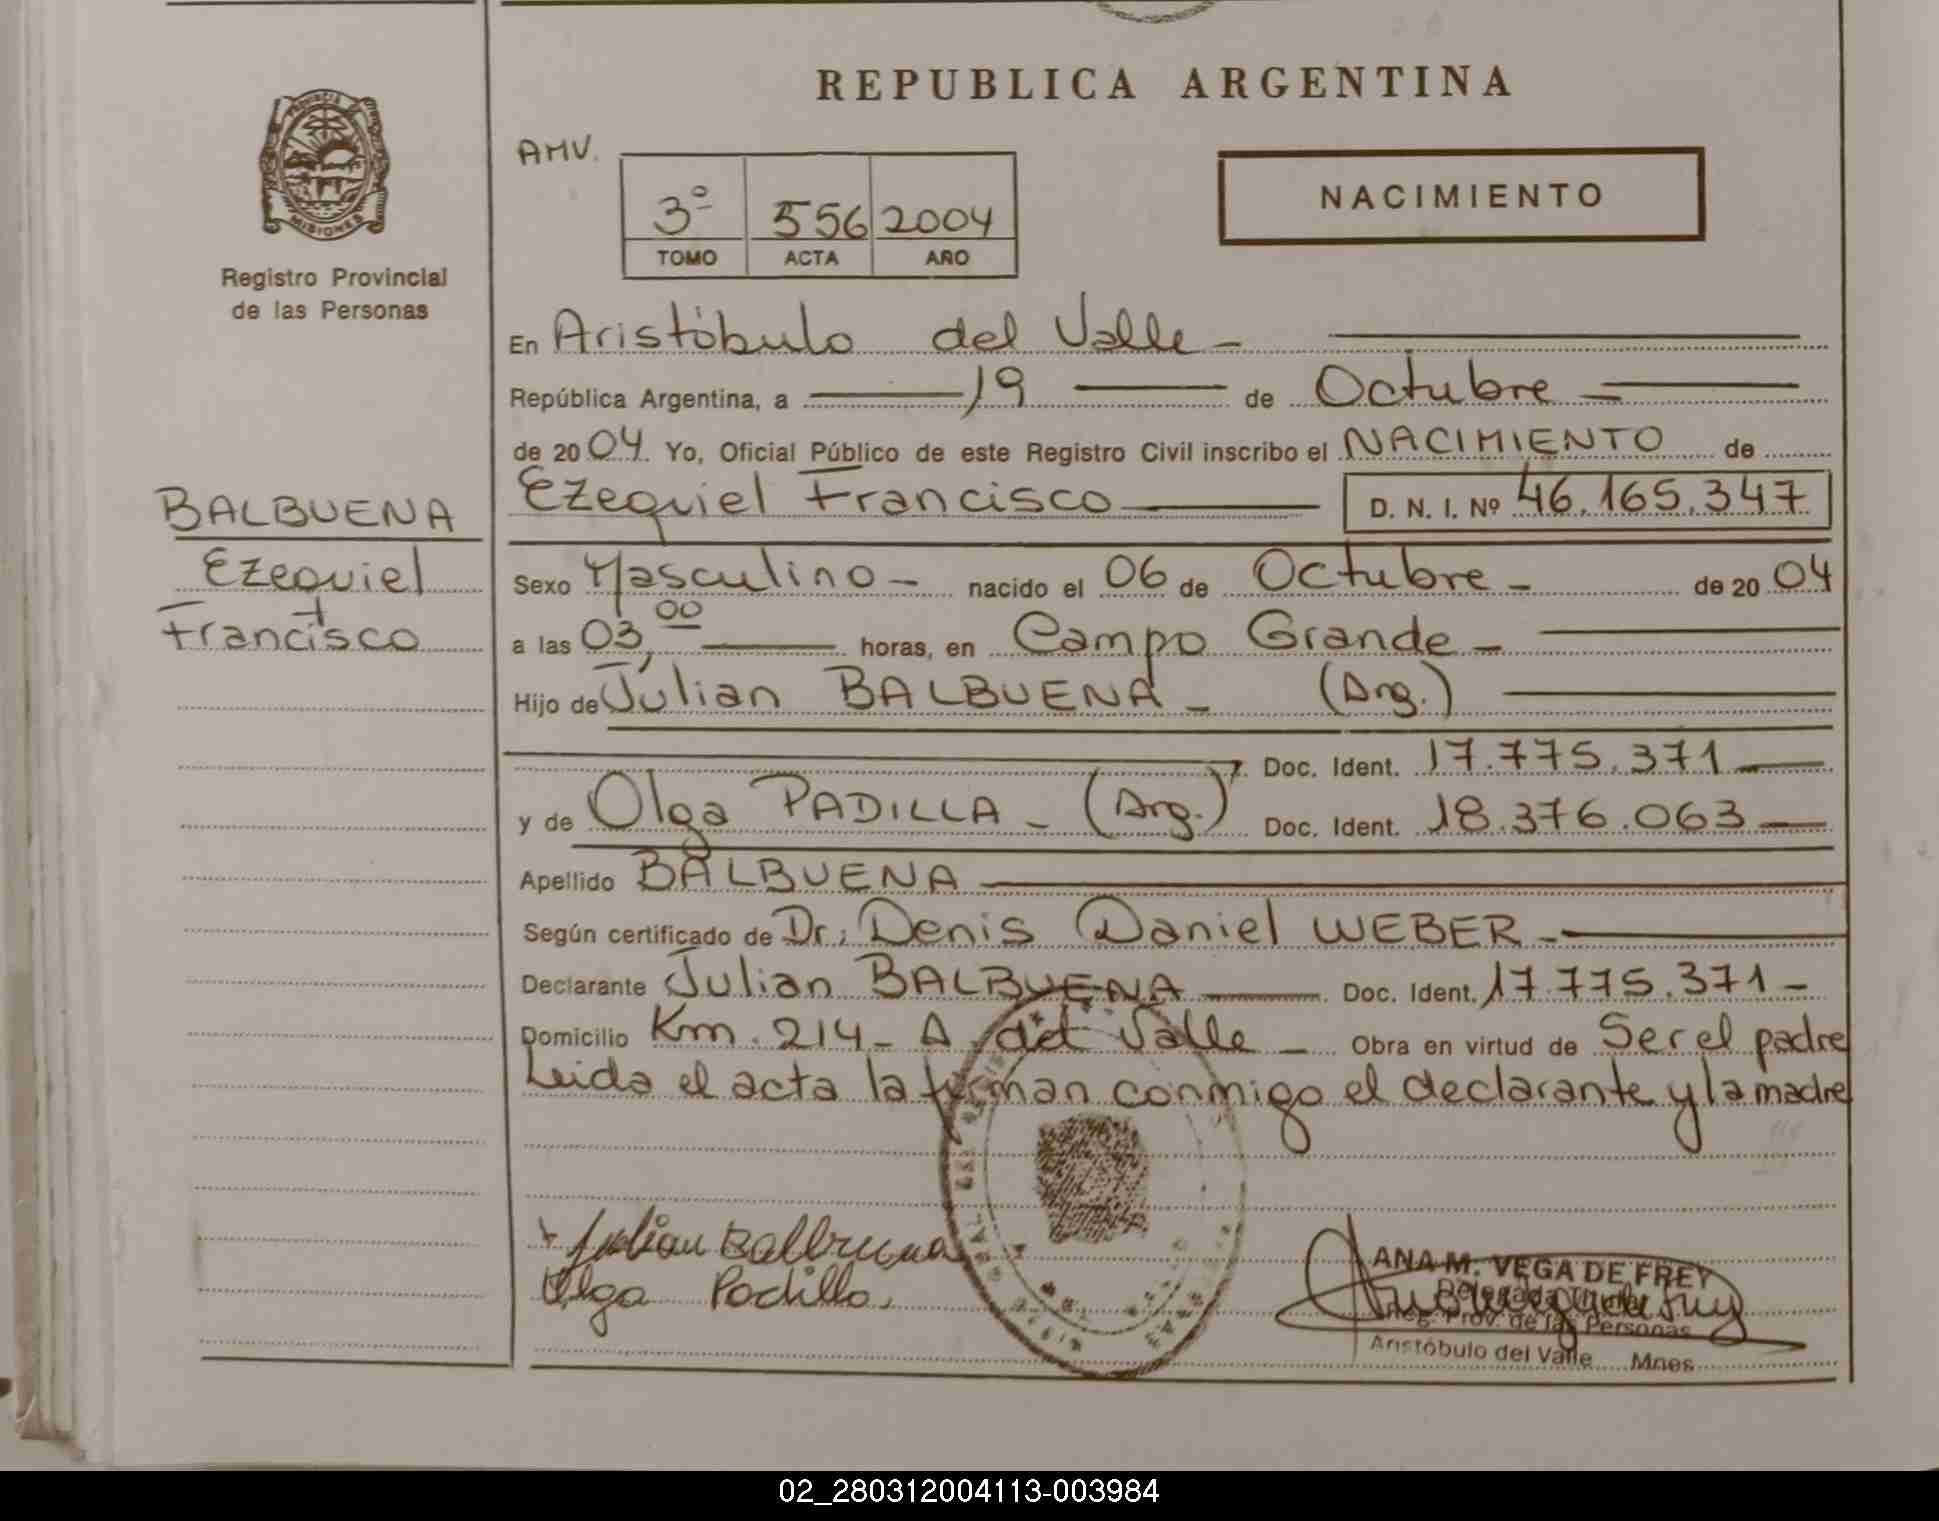 REPUBLICA ARGENTINA
PROVINCIA DE
MISIONES
Registro Provincial
de las Personas
AMV.
3º 556 2004
TOMO ACTA AÑO
NACIMIENTO
En Aristóbulo del Valle -
República Argentina, a 19 de Octubre
de 2004. Yo, Oficial Público de este Registro Civil inscribo el NACIMIENTO de
Ezequiel Francisco D. N. I. Nº 46.165.347
BALBUENA
Ezequiel
Francisco
Sexo Masculino - nacido el 06 de Octubre - de 2004
a las 03,00 horas, en Campo Grande -
Hijo de Julian BALBUENA - (Arg.)
Doc. Ident. 17.775.371
y de Olga PADILLA - (Arg.) Doc. Ident. 18.376.063
Apellido BALBUENA
Según certificado de Dr. Denis Daniel WEBER -
Declarante Julian BALBUENA Doc. Ident. 17.775.371 -
Domicilio Km. 214 - A. del Valle - Obra en virtud de Ser el padre
Leida el acta la firman conmigo el declarante y la madre
Julian Balbuena
Olga Padilla.
ANA M. VEGA DE FREY
Delegada Titular
Reg. Prov. de las Personas
Aristóbulo del Valle Mnes
02_280312004113-003984